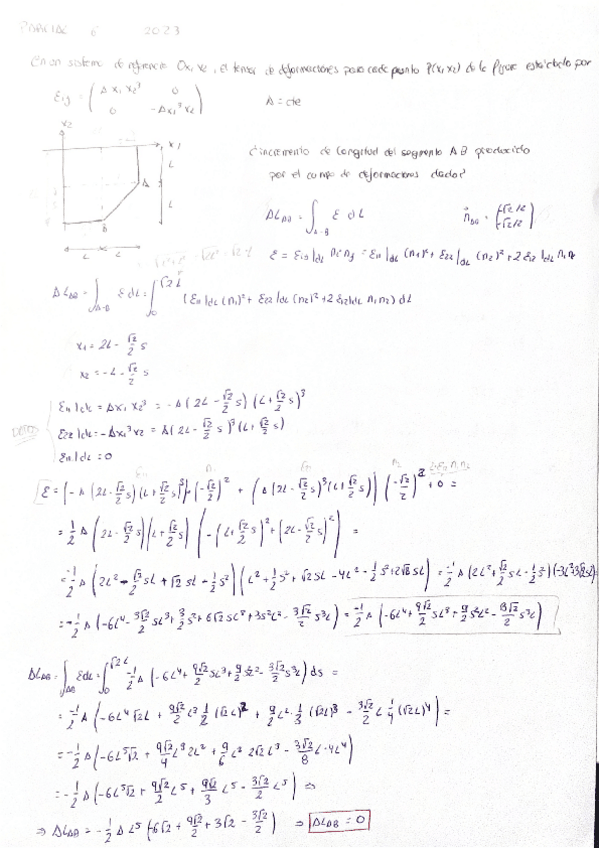 PARCIAL 6 2023
En un sistema de referencia Ox₁x₂, el tensor de deformaciones para cada punto P(x₁x₂) de la figura está dado por
Eij = (Δx₁x₂³ 0
0 -Δx₁³x₂) Δ = cte
x₂
x₁
L
A
L
B
L L
¿incremento de longitud del segmento AB producido
por el campo de deformaciones dado?
ΔL_AB = ∫_A-B ε dL n_BA = (-√2/2
-√2/2)
ε = εij|dL ni nj = ε11|dL (n₁)² + ε22|dL (n₂)² + 2 ε12|dL n₁n₂
ΔL_AB = ∫_A-B ε dL = ∫₀^√2L (ε11|dL (n₁)² + ε22|dL (n₂)² + 2 ε12|dL n₁n₂) dL
x₁ = 2L - √2/2 s
x₂ = -L - √2/2 s
DATO
ε11|dL = Δx₁x₂³ = -Δ(2L - √2/2 s)(L + √2/2 s)³
ε22|dL = -Δx₁³x₂ = Δ(2L - √2/2 s)³(L + √2/2 s)
ε12|dL = 0
ε = [-Δ(2L - √2/2 s)(L + √2/2 s)³](-√2/2)² + (Δ(2L - √2/2 s)³(L + √2/2 s))(-√2/2)² + 0 =
= 1/2 Δ(2L - √2/2 s)(L + √2/2 s)(-(L + √2/2 s)² + (2L - √2/2 s)²) =
= -1/2 Δ(2L² - √2/2 sL + √2 sL - 1/2 s²)(L² + 1/2 s² + √2 sL - 4L² - 1/2 s² + 2√2 sL) = -1/2 Δ(2L² + √2/2 sL - 1/2 s²)(-3L² + 3√2 sL) =
= -1/2 Δ(-6L⁴ - 3√2/2 sL³ + 3/2 s² + 6√2 sL³ + 3s²L² - 3√2/2 s³L) = -1/2 Δ(-6L⁴ + 9√2/2 sL³ + 9/2 s²L² - 3√2/2 s³L)
ΔL_AB = ∫_AB ε dL = ∫₀^√2L -1/2 Δ(-6L⁴ + 9√2/2 sL³ + 9/2 s²L² - 3√2/2 s³L) ds =
= -1/2 Δ(-6L⁴ √2L + 9√2/2 L³ 1/2 (√2L)² + 9/2 L² · 1/3 (√2L)³ - 3√2/2 L 1/4 (√2L)⁴) =
= -1/2 Δ(-6L⁵√2 + 9√2/4 L³ 2L² + 9/6 L² 2√2 L³ - 3√2/8 L · 4L⁴)
= -1/2 Δ(-6L⁵√2 + 9√2/2 L⁵ + 9√2/3 L⁵ - 3√2/2 L⁵) ⇒
⇒ ΔL_AB = -1/2 Δ L⁵(-6√2 + 9√2/2 + 3√2 - 3√2/2) ⇒ ΔL_AB = 0